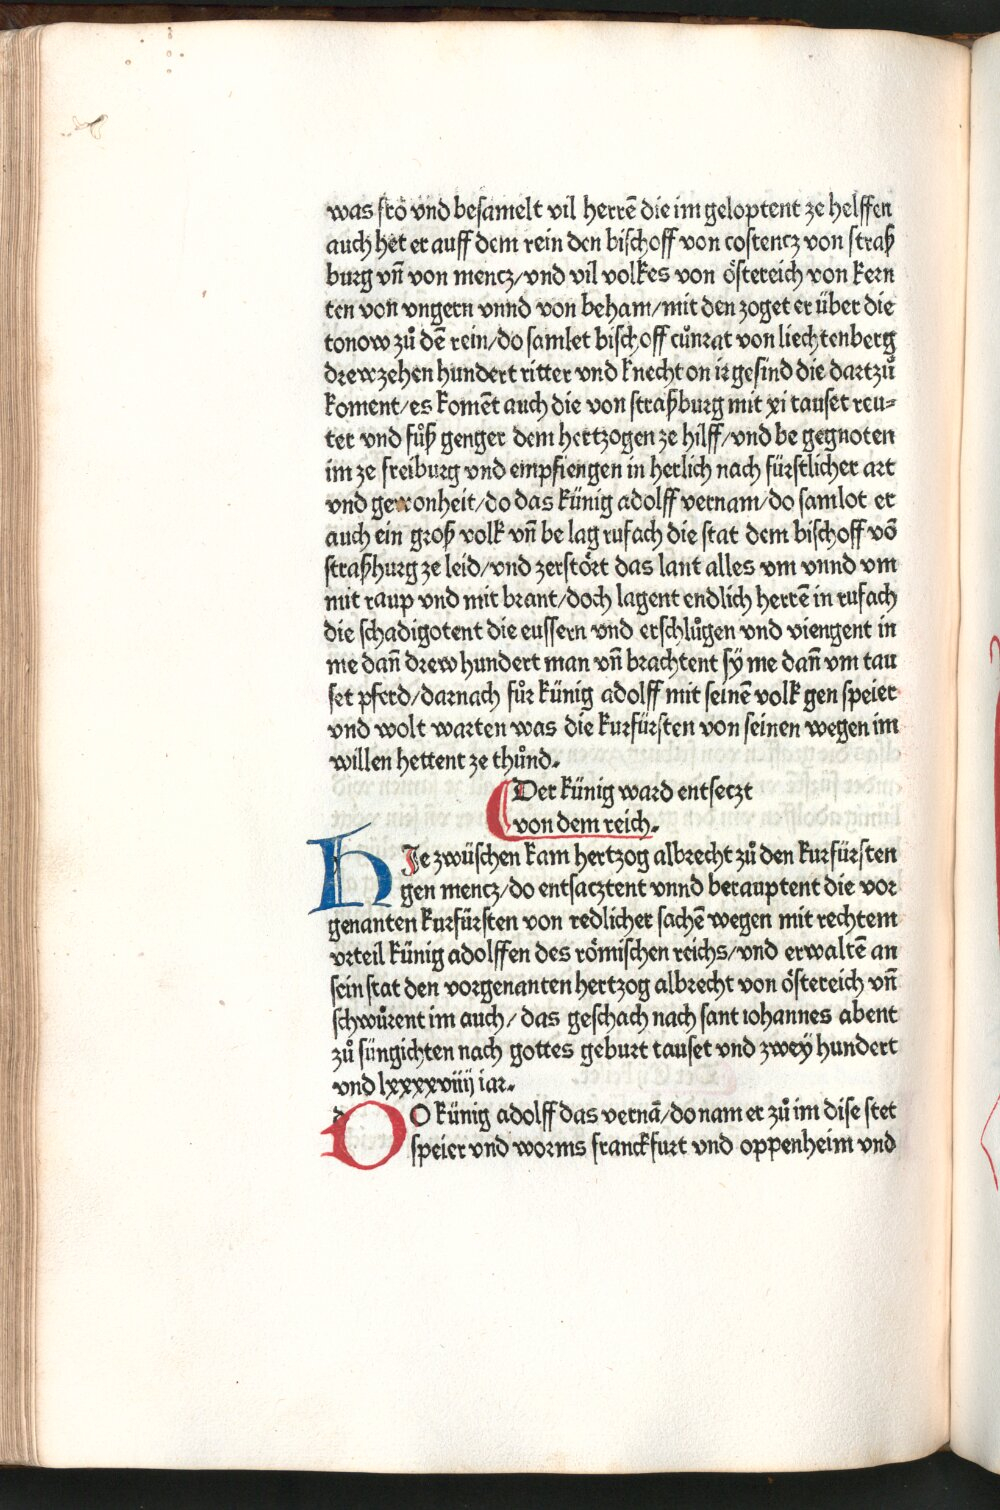 was frö vnd besamelt vil herrē die im geloptent ze helffen
auch het er auff dem rein den bischoff von costencz von straß
burg vn̄ von mencz/vnd vil volkes von östereich von kern
ten von vngern vnnd von beham/mit den zoget er über die
tonow zů dē rein/do samlet bischoff cůnrat von liechtenberg
drewzehen hundert ritter vnd knecht on ir gesind die dartzů
koment/es komēt auch die von straßburg mit xi tauset reu⸗
ter vnd fůß genger dem hertzogen ze hilff/vnd be gegnoten
im ze freiburg vnd empfiengen in herlich nach fürstlicher art
vnd gewonheit/do das künig adolff vernam/do samlot er
auch ein groß volk vn̄ be lag rufach die stat dem bischoff vō
straßhurg ze leid/vnd zerstört das lant alles vm vnnd vm
mit raup vnd mit brant/doch lagent endlich herrē in rufach
die schadigotent die eussern vnd erschlůgen vnd viengent in
me dan̄ drew hundert man vn̄ brachtent sÿ me dan̄ vm tau
set pferd/darnach fůr künig adolff mit seinē volk gen speier
vnd wolt warten was die kurfürsten von seinen wegen im
willen hettent ze thůnd.
Der künig ward entseczt
von dem reich.
h Je zwüschen kam hertzog albrecht zů den kurfürsten
gen mencz/do entsacztent vnnd berauptent die vor
genanten kurfürsten von redlicher sachē wegen mit rechtem
vrteil künig adolffen des römischen reichs/vnd erwaltē an
sein stat den vorgenanten hertzog albrecht von östereich vn̄
schwůrent im auch/das geschach nach sant iohannes abent
zů süngichten nach gottes geburt tauset vnd zweÿ hundert
vnd lxxxxviiij iar.
D O künig adolff das vernā/do nam er zů im dise stet
speier vnd worms franckfurt vnd oppenheim vnd